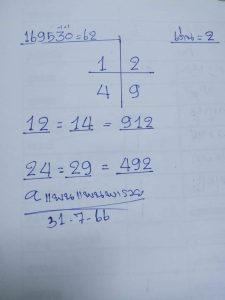 169530=62 เด่น=2
1 2
4 9
12=14=912
24=29=492
31-7-66